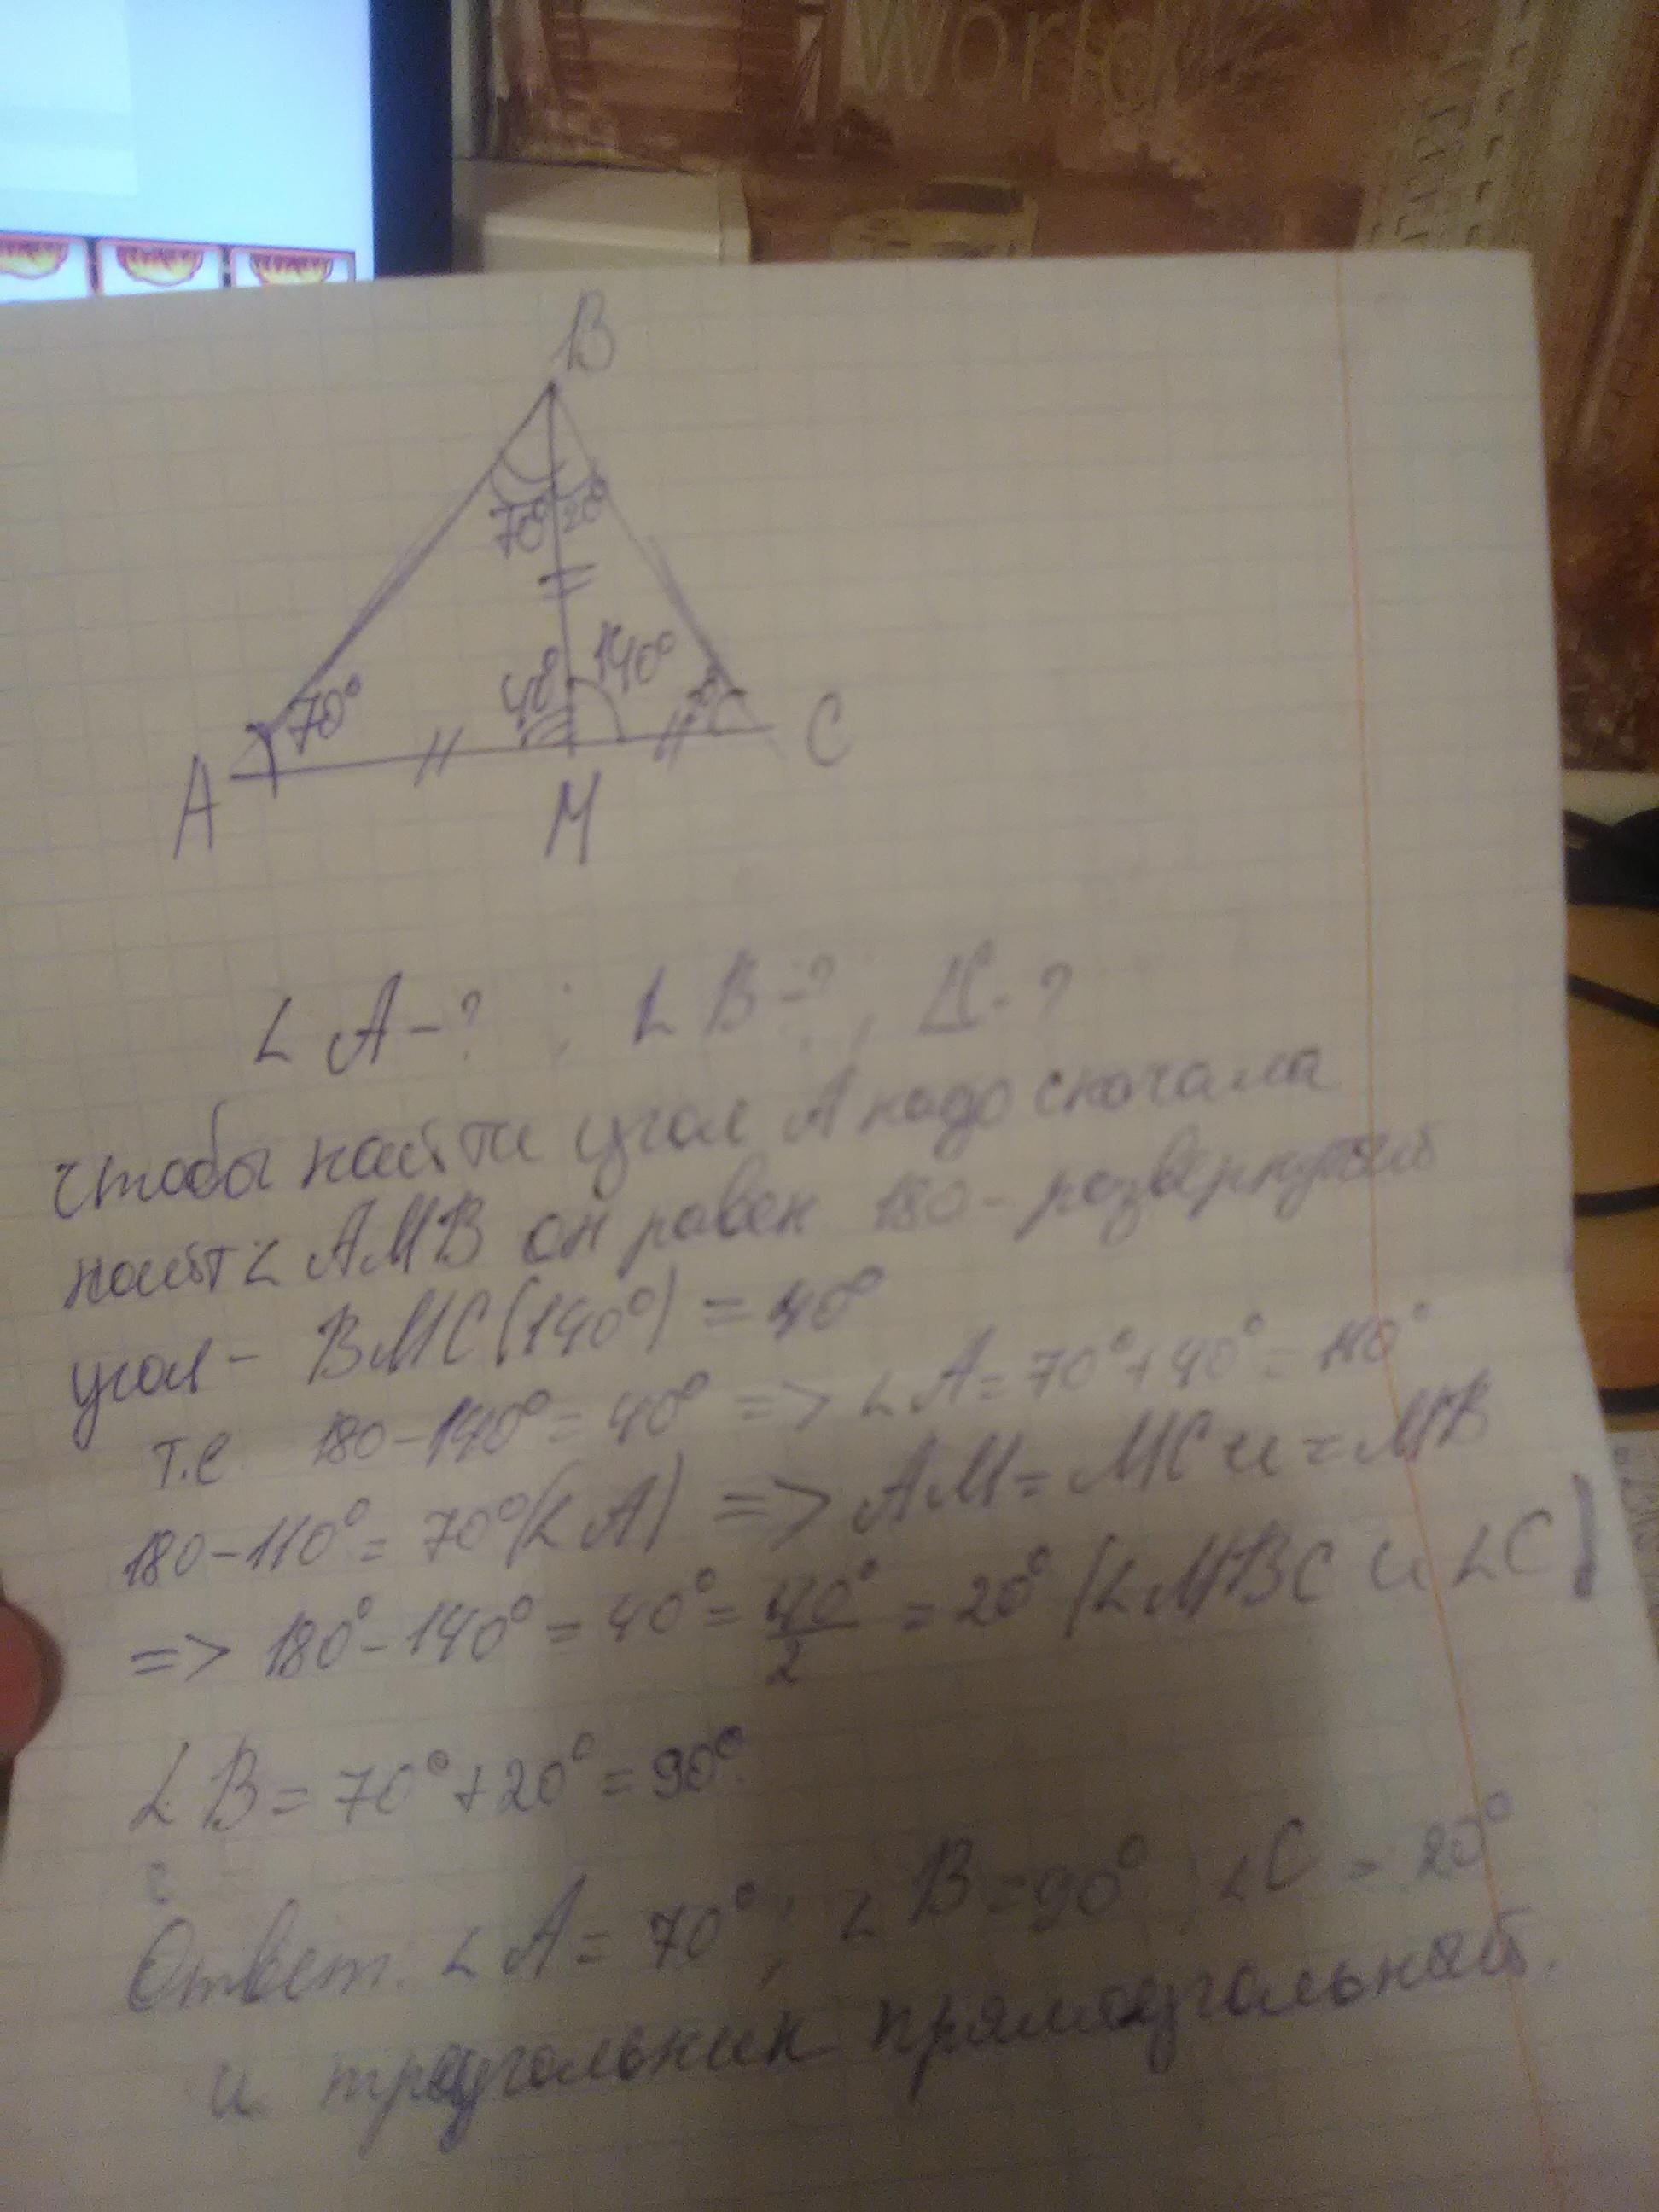 World
B
70° 20°
140°
40°
70°
A
M
C
∠A-? ; ∠B-?; ∠C-?
чтобы найти угол A надо сначала
найт ∠AMB он равен 180-развернутый
угол - BMC(140°) = 40°
т.е. 180-140°=40° => ∠A=70°+40°=110°
180-110°=70°(∠A) => AM=MC и = MB
=> 180°-140°=40°=40°/2=20° (∠MBC и ∠C)
∠B=70°+20°=90°.
Ответ: ∠A=70°; ∠B=90°; ∠C=20°
и треугольник прямоугольный.